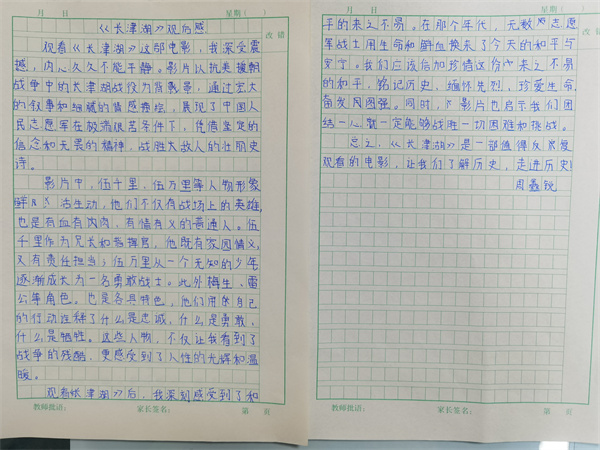 月 日 星期( )
改错
《长津湖》观后感
观看《长津湖》这部电影，我深受震
撼，内心久久不能平静。影片以抗美援朝
战争中的长津湖战役为背景，通过宏大
的叙事和细腻的情感描绘，展现了中国人
民志愿军在极端艰苦条件下，凭借坚定的
信念和无畏的精神，战胜大敌人的壮丽史
诗。
影片中，伍千里，伍万里等人物形象
鲜活生动，他们不仅有战场上的英雄，
也是有血有肉，有情有义的普通人。伍
千里作为兄长和指挥官，他既有家国情义，
又有责任担当；伍万里从一个无知的少年
逐渐成长为一名勇敢战士。此外梅生、雷
公等角色。也是各具特色，他们用自己
的行动诠释了什么是忠诚，什么是勇敢，
什么是牺牲。这些人物，不仅让我看到了
战争的残酷，更感受到了人性的光辉和温
暖。
观看《长津湖》后，我深刻感受到了和
教师批语： 家长签名： 第 页
月 日 星期( )
改错
平的来之不易。在那个年代，无数志愿
军战士用生命和鲜血换来了今天的和平与
安宁。我们应该后加珍惜这份来之不易
的和平，铭记历史，缅怀先烈，珍爱生命，
奋发风图强。同时，影片也启示我们团
结一心就一定能够战胜一切困难和挑战。
总之，《长津湖》是一部值得反众爱
观看的电影，让我们了解历史，走进历史！
周鑫锐
教师批语： 家长签名： 第 页